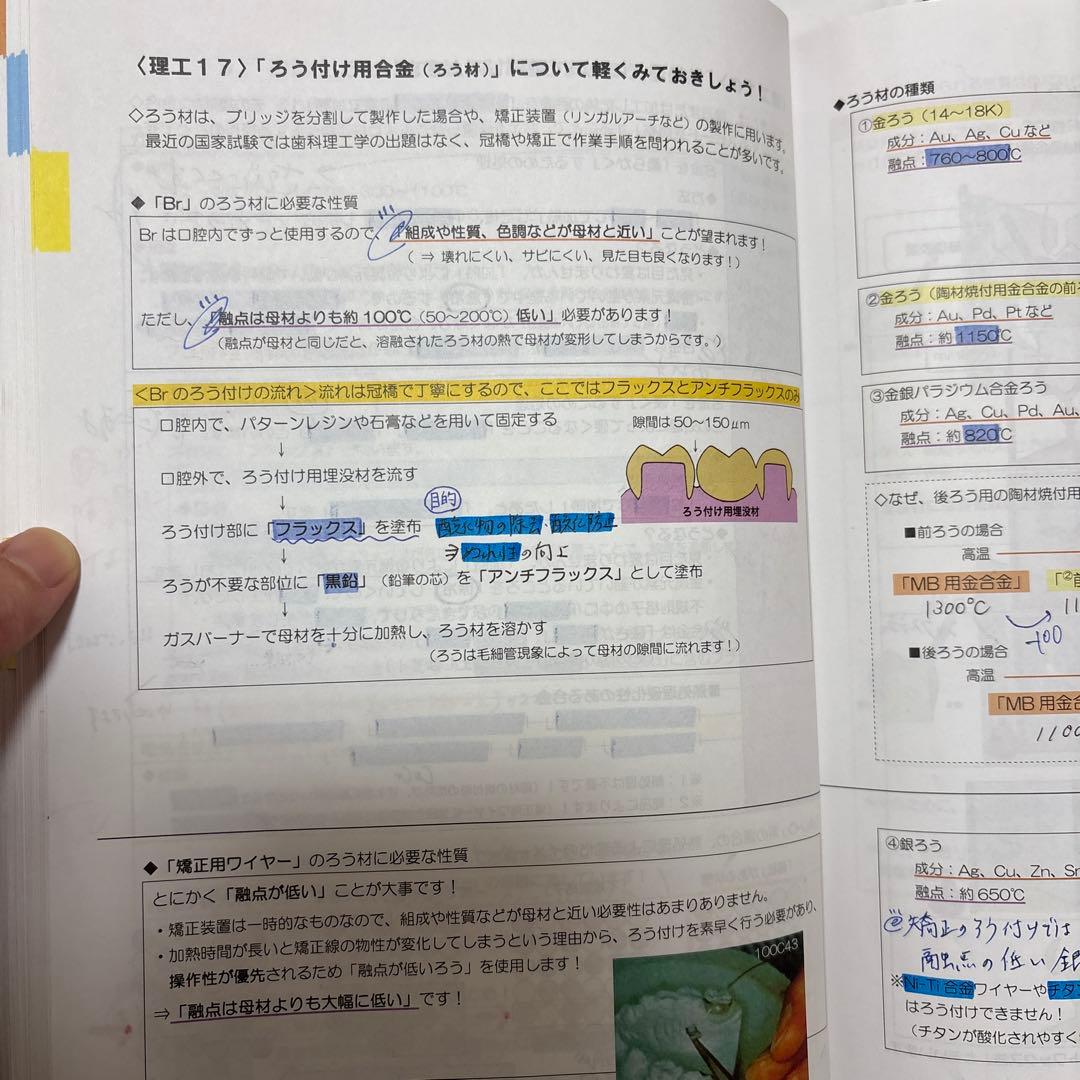 〈理工17〉「ろう付け用合金（ろう材）」について軽くみておきしょう！
◇ろう材は、ブリッジを分割して製作した場合や、矯正装置（リンガルアーチなど）の製作に用います。
最近の国家試験では歯科理工学の出題はなく、冠橋や矯正で作業手順を問われることが多いです。
◆「Br」のろう材に必要な性質
Brは口腔内でずっと使用するので「組成や性質、色調などが母材と近い」ことが望まれます！
（⇒ 壊れにくい、サビにくい、見た目も良くなります！）
ただし、「融点は母材よりも約100℃（50～200℃）低い」必要があります！
（融点が母材と同じだと、溶融されたろう材の熱で母材が変形してしまうからです。）
＜Brのろう付けの流れ＞流れは冠橋で丁寧にするので、ここではフラックスとアンチフラックスのみ
口腔内で、パターンレジンや石膏などを用いて固定する
↓
口腔外で、ろう付け用埋没材を流す
↓
ろう付け部に「フラックス」を塗布
目的
酸化物の除去・酸化防止
⇒ぬれ性の向上
↓
ろうが不要な部位に「黒鉛」（鉛筆の芯）を「アンチフラックス」として塗布
↓
ガスバーナーで母材を十分に加熱し、ろう材を溶かす
（ろうは毛細管現象によって母材の隙間に流れます！）
隙間は50～150μm
ろう付け用埋没材
◆「矯正用ワイヤー」のろう材に必要な性質
とにかく「融点が低い」ことが大事です！
・矯正装置は一時的なものなので、組成や性質などが母材と近い必要性はあまりありません。
・加熱時間が長いと矯正線の物性が変化してしまうという理由から、ろう付けを素早く行う必要があり、
操作性が優先されるため「融点が低いろう」を使用します！
⇒「融点は母材よりも大幅に低い」です！
100C43
◆ろう材の種類
①金ろう（14～18K）
成分：Au、Ag、Cuなど
融点：760～800℃
②金ろう（陶材焼付用金合金の前
成分：Au、Pd、Ptなど
融点：約1150℃
③金銀パラジウム合金ろう
成分：Ag、Cu、Pd、Au、
融点：約820℃
◇なぜ、後ろう用の陶材焼付用
■前ろうの場合
高温
「MB用金合金」
「②前
1300℃
11
-100
■後ろうの場合
高温
「MB用金合
1100
④銀ろう
成分：Ag、Cu、Zn、Sn
融点：約650℃
矯正のろう付けでは
融点の低い 銀
※Ni-Ti合金ワイヤーやチタン
はろう付けできません！
（チタンが酸化されやすく